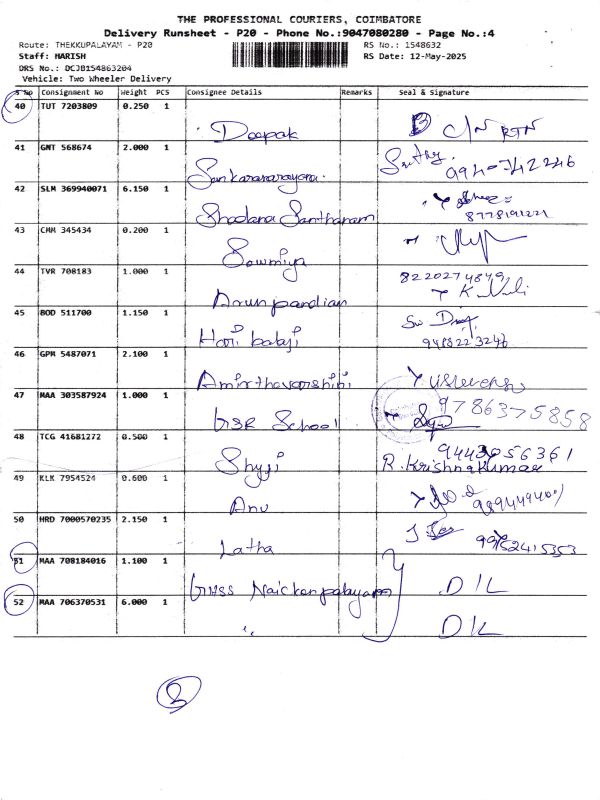 THE PROFESSIONAL COURIERS, COIMBATORE
Delivery Runsheet - P20 - Phone No.:9047080280 - Page No.:4
Route: THEKKUPALAYAM - P20 RS No.: 1548632
Staff: HARISH RS Date: 12-May-2025
DRS No.: DCJB154863204
Vehicle: Two Wheeler Delivery
S No Consignment No Weight PCS Consignee Details Remarks Seal & Signature
40 TUT 7203809 0.250 1
Deepak C/N RTN
41 GMT 568674 2.000 1
Sankaranarayana. 9940742246
42 SLM 369940071 6.150 1
Shodana Santhanam 8778191221
43 CHM 345434 0.200 1
Sowmiya
44 TVR 708183 1.000 1 8220274849
Arun pandian
45 BOD 511700 1.150 1
Hari balaji 9488223246
46 GPM 5487071 2.100 1
Amirthavarshini
47 MAA 303587924 1.000 1 9786375858
GSR School
48 TCG 41681272 0.500 1 9443056361
Shyji R. Krishnakumar
49 KLK 7954524 0.600 1
Anu
50 HRD 7000570235 2.150 1
Latha 9952415353
51 MAA 708184016 1.100 1
GHSS Naickenpalayam D/L
52 MAA 706370531 6.000 1
" D/L